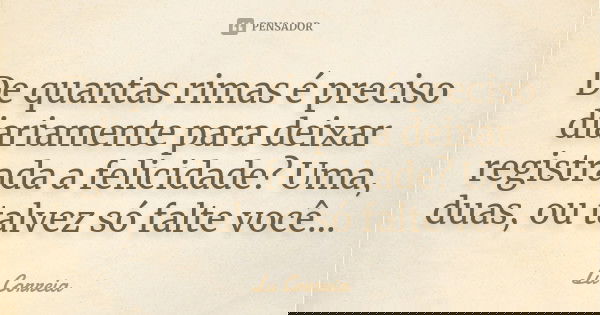 PENSADOR
De quantas rimas é preciso
diariamente para deixar
registrada a felicidade? Uma,
duas, ou talvez só falte você...
Li Correia